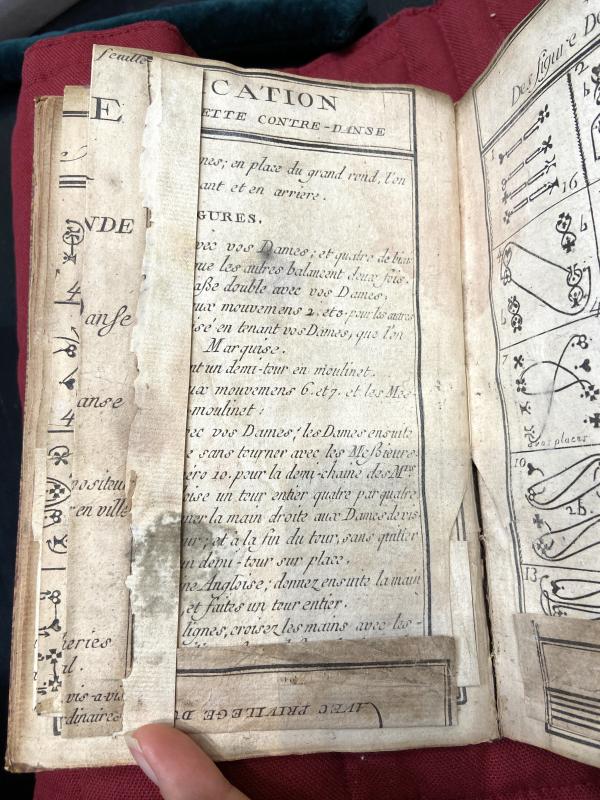 feuille
E
NDE
anse
anse
en ville
vis-a-vis
dinaires
CATION
ETTE CONTRE-DANSE
nes; en place du grand rond, l'on
ant et en arriere.
GURES.
vec vos Dames; et quatre de biais
que les autres balancent deux fois.
asse double avec vos Dames.
ux mouvemens 2. et 3. pour les autres
ise en tenant vos Dames, que l'on
Marquise.
nt un demi-tour en moulinet.
ux mouvemens 6. et 7. et les Mes-
moulinet:
vec vos Dames; les Dames ensuite
e sans tourner avec les Messieurs
éro 10. pour la demi-chaine des Mrs
oise un tour entier quatre par quatre
ner la main droite aux Dames de vis
ur; et à la fin du tour, sans quitter
n demi-tour sur place.
ne Angloise; donnez ensuite la main
et faites un tour entier.
lignes, croisez les mains avec les-
AVEC PRIVILEGE DU
Des figure De
1
16
2
b
b
7
a vos places
10
2b
13